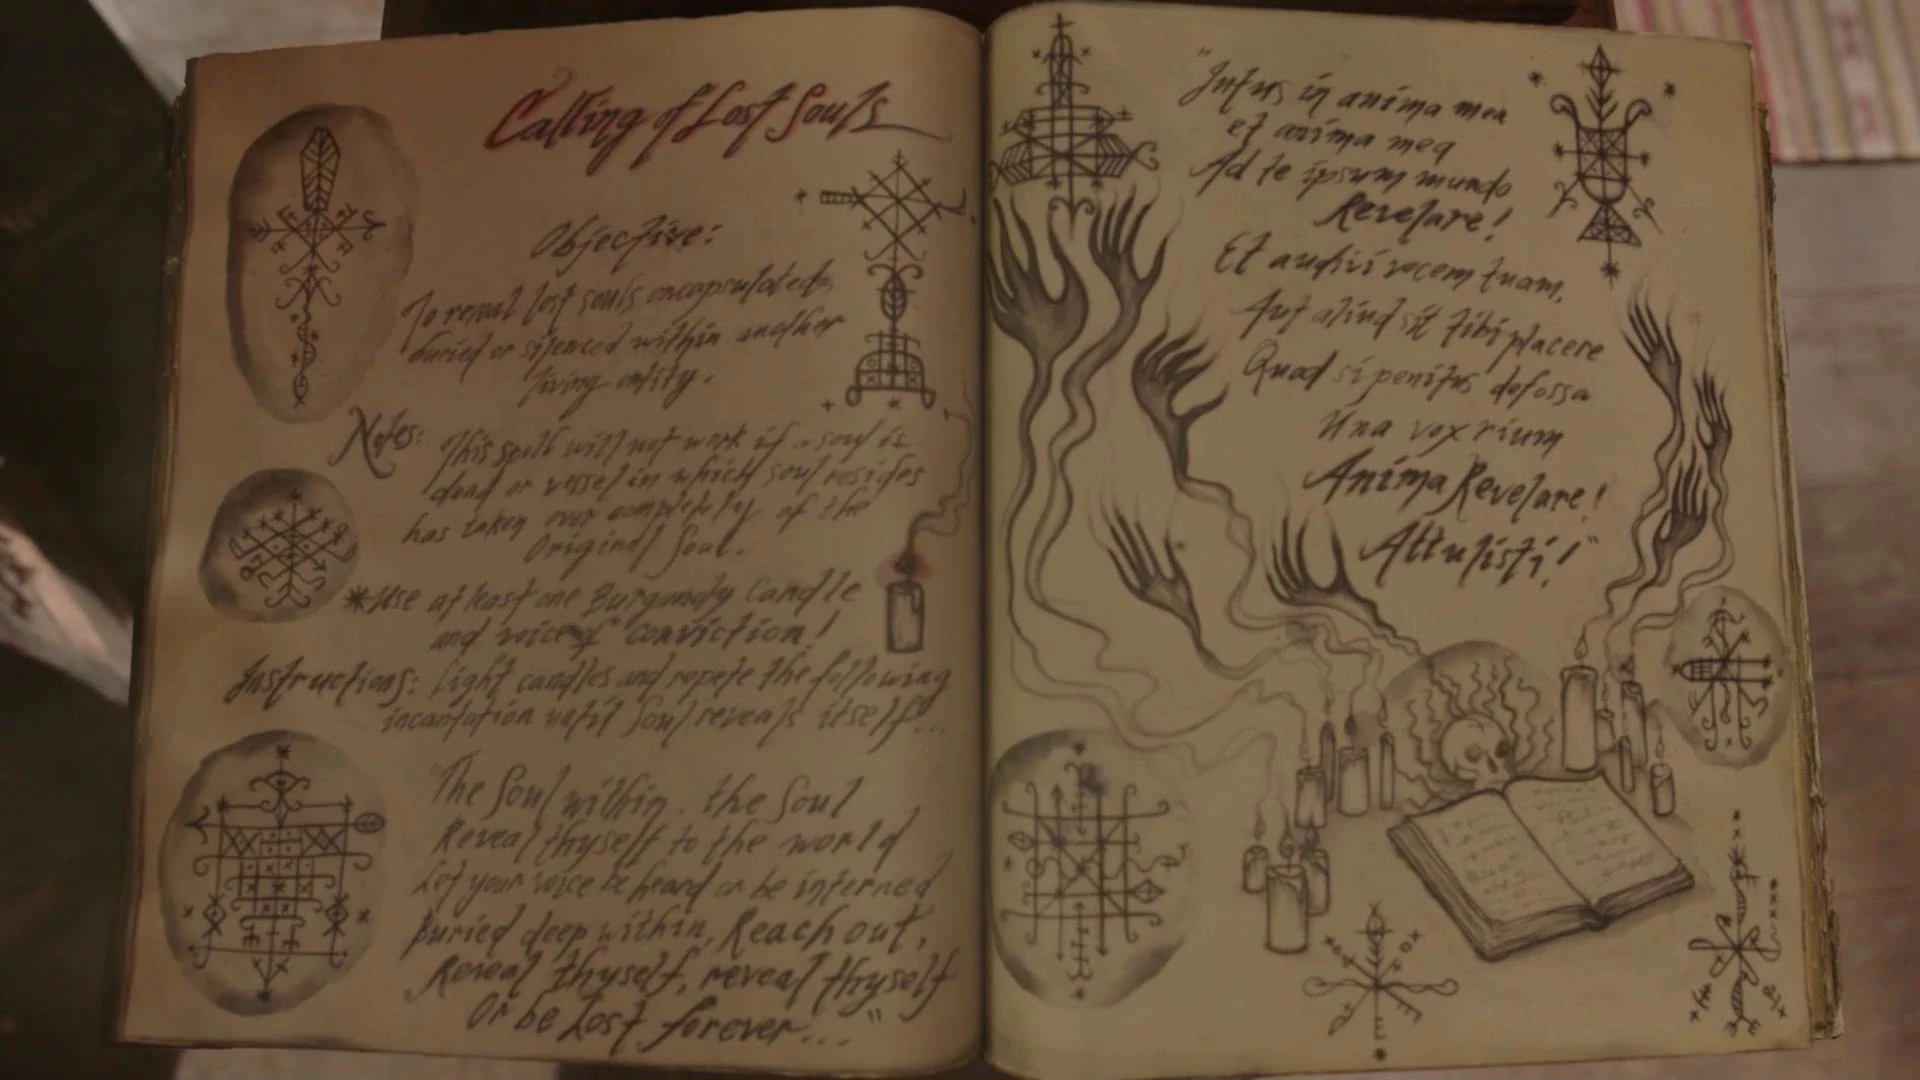 Calling of Lost Souls
Objective:
To reveal lost souls encapsulated,
buried or silenced within another
living entity.
Notes: This spell will not work if a soul is
dead or vessel in which soul resides
has taken over completely of the
Original Soul.
*Use at least one Burgundy Candle
and voice of conviction!
Instructions: Light candles and repete the following
incantation until Soul reveals itself...
"The Soul within, the Soul
Reveal thyself to the world
Let your voice be heard or be interned
Buried deep within, Reach out,
Reveal thyself, reveal thyself
Or be Lost forever..."
"Intus in anima mea
et anima mea
Ad te ipsum mundo
Revelare!
Et audivi vocem tuam,
Aut aliud sit tibi placere
Quod si penitus defossa
Una vox rium
Anima Revelare!
Attulisti!"